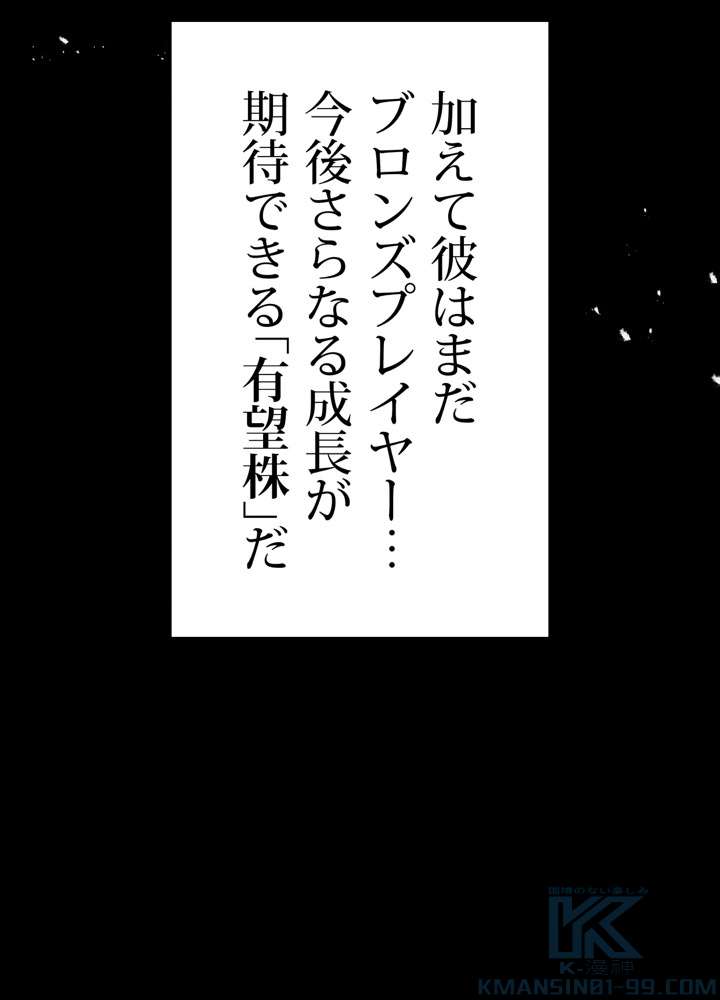 加えて彼はまだ
ブロンズプレイヤー…
今後さらなる成長が
期待できる「有望株」だ
国境のない楽しみ
K-漫神
KMANSIN01-99.COM